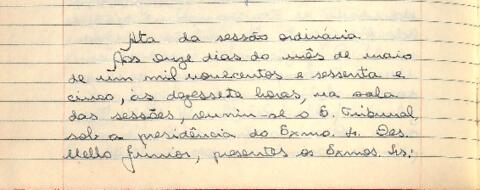 Ata da sessão ordinária
Aos onze dias do mês de maio
de um mil novecentos e sessenta e
cinco, às dezesseta horas, na sala
das sessões, reuniu-se o E. Tribunal,
sob a presidência do Exmo. Sr. Des.
Mello Junior, presentes os Exmos. Srs: